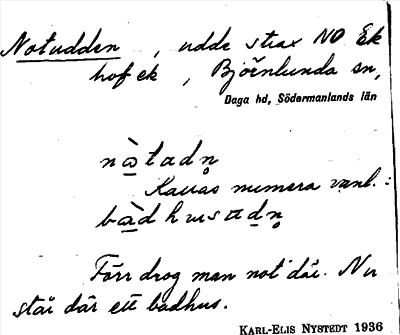 Notudden, udde strax NO Ek
hof ek, Björnlunda sn,
Daga hd, Södermanlands län
nàtadn
Kallas numera vanl.:
bàdhusadn
Förr drog man not där. Nu
står där ett badhus.
KARL-ELIS NYSTEDT 1936